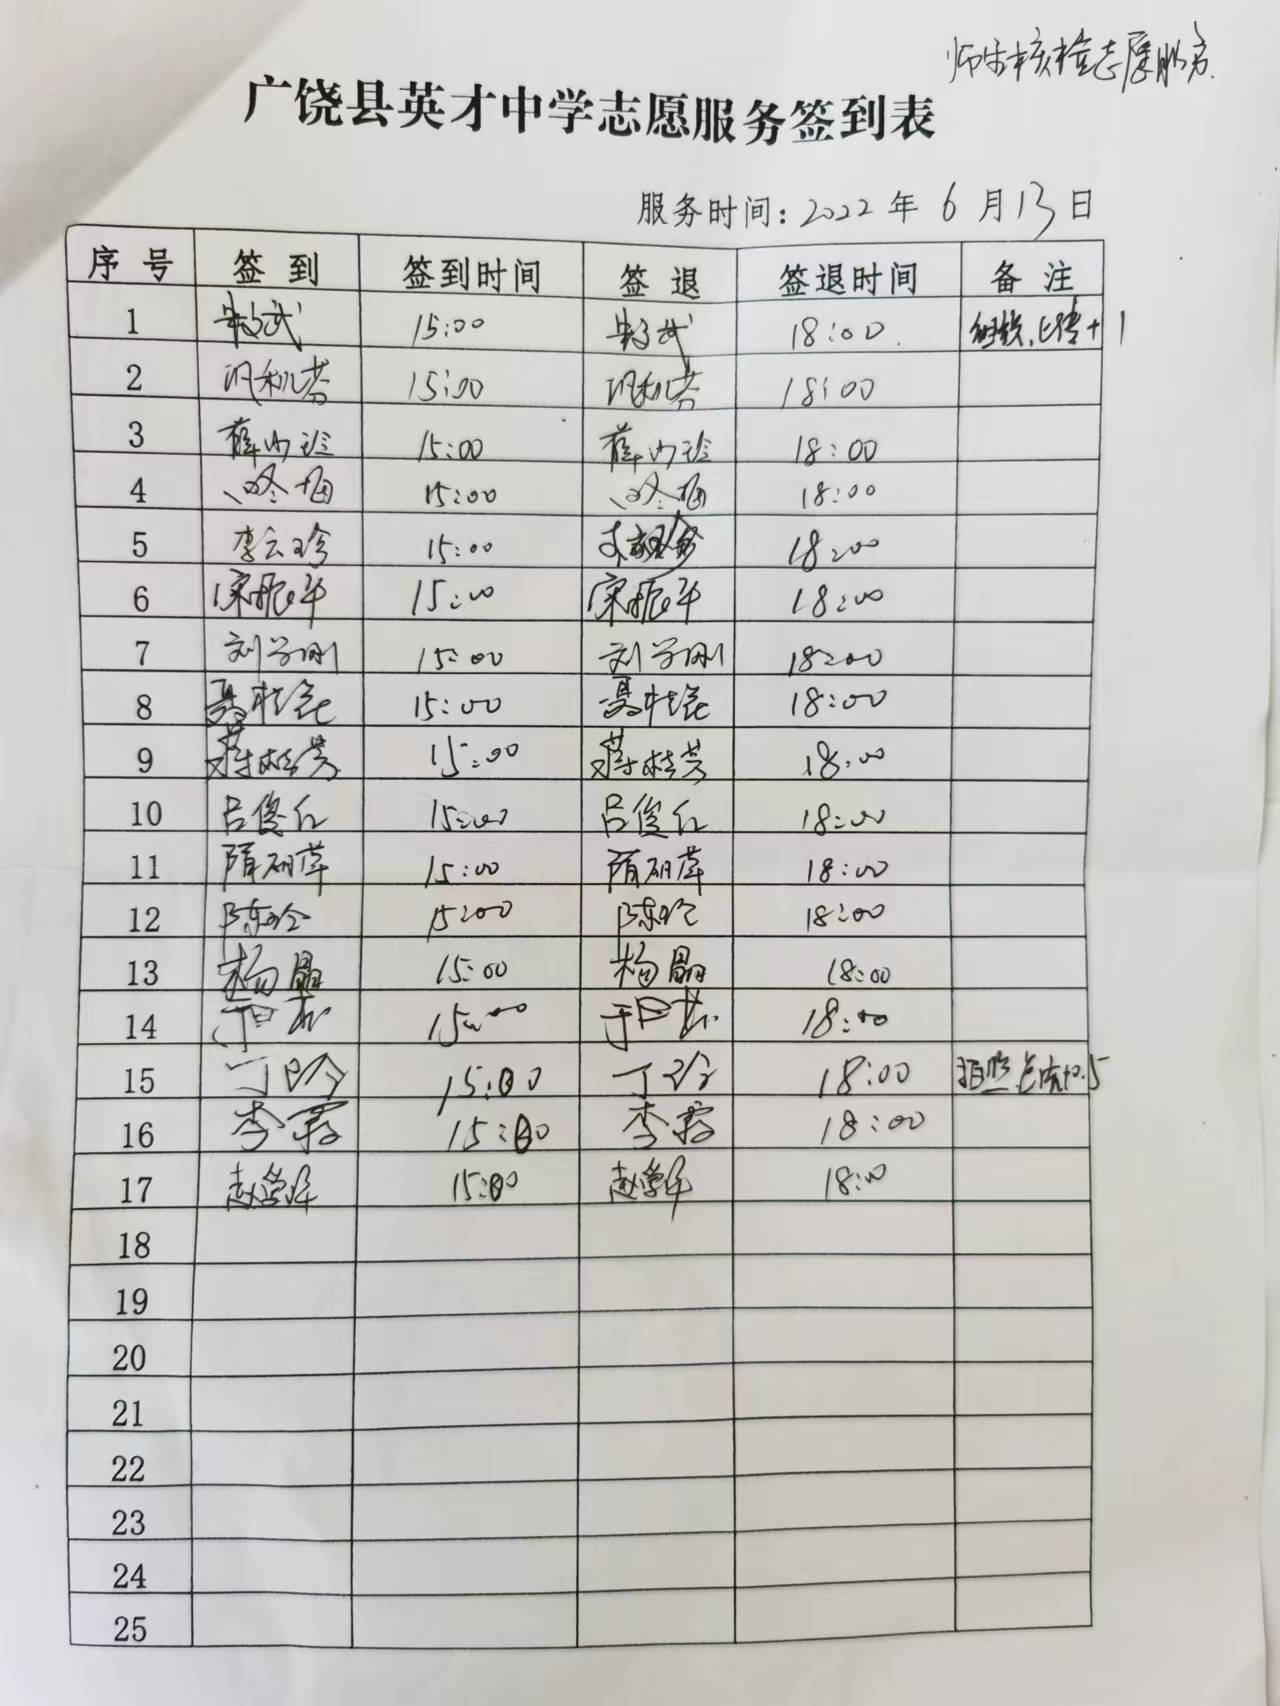 师生核检志愿服务
广饶县英才中学志愿服务签到表
服务时间：2022年6月13日
序号 签到 签到时间 签退 签退时间 备注
1 15:00 18:00
2 15:00 18:00
3 15:00 18:00
4 15:00 18:00
5 李云珍 15:00 18:00
6 宋振华 15:00 宋振华 18:00
7 刘学刚 15:00 刘学刚 18:00
8 聂桂花 15:00 聂桂花 18:00
9 蒋桂芳 15:00 蒋桂芳 18:00
10 吕俊红 15:00 吕俊红 18:00
11 隋丽萍 15:00 隋丽萍 18:00
12 陈玲 15:00 陈玲 18:00
13 杨晶 15:00 杨晶 18:00
14 15:00 18:00
15 丁玲 15:00 丁玲 18:00
16 李霞 15:00 李霞 18:00
17 15:00 18:00
18
19
20
21
22
23
24
25